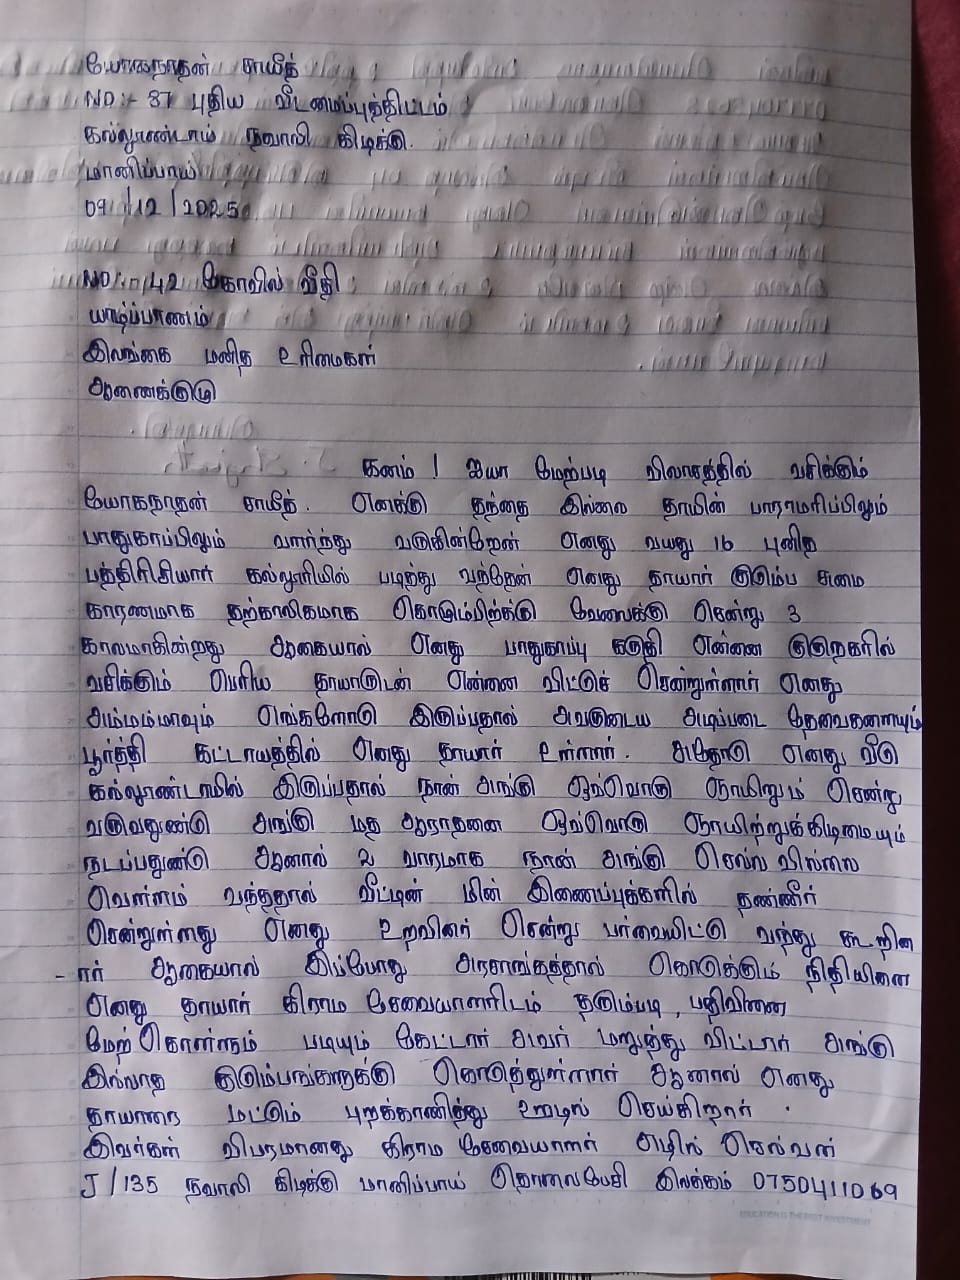 யோகநாதன் சாயீத்
NO:- 87 புதிய வீடமைப்புத்திட்டம்
கல்லூண்டாய் நவாலி கிழக்கு.
மானிப்பாய்
09/12/2025
NO:- 42 கோவில் வீதி
யாழ்ப்பாணம்
இலங்கை மனித உரிமைகள்
ஆணைக்குழு
கனம் ! ஐயா மேற்படி விலாசத்தில் வசிக்கும்
யோகநாதன் சாயீத். எனக்கு தந்தை இல்லை தாயின் பாராமரிப்பிலும்
பாதுகாப்பிலும் வளர்ந்து வருகின்றேன் எனது வயது 16 புனித
பத்திரிசியார் கல்லூரியில் படித்து வந்தேன் எனது தாயார் குடும்ப சுமை
காரணமாக தற்காலிகமாக கொழும்பிற்க்கு வேலைக்கு சென்று 3
காலமாகின்றது ஆகையால் எனது பாதுகாப்பு கருதி என்னை குருநகரில்
வசிக்கும் பெரிய தாயாருடன் என்னை விட்டுச் சென்றுள்ளார் எனது
அம்மம்மாவும் எங்களோடு இருப்பதால் அவருடைய அடிப்படை தேவைகளையும்
பூர்த்தி கட்டாயத்தில் எனது தாயார் உள்ளார். அதோடு எனது வீடு
கல்லூண்டாயில் இருப்பதால் நான் அங்கு ஒவ்வொரு ஞாயிறும் சென்று
வருவதுண்டு அங்கு மத ஆராதனை ஒவ்வொரு ஞாயிற்றுக்கிழமையும்
நடப்பதுண்டு ஆனால் 2 வாரமாக நான் அங்கு செல்ல வில்லை
வெள்ளம் வந்ததால் வீட்டின் மின் இணைப்புக்களில் தண்ணீர்
சென்றுள்ளது எனது உறவினர் சென்று பார்வையிட்டு வந்து கூறின
- ார் ஆகையால் இப்போது அரசாங்கத்தால் கொடுக்கும் நிதியினை
எனது தாயார் கிராம சேவையாளரிடம் தரும்படி, பதிவினை
மேற்கொள்ளும் படியும் கேட்டார் அவர் மறுத்து விட்டார் அங்கு
இல்லாத குடும்பங்களுக்கு கொடுத்துள்ளார் ஆனால் எனது
தாயாரை மட்டும் புறக்கானித்து ஊழல் செய்கிறார்.
இவர்கள் விபரமானது கிராம சேவையாளர் எழில் செல்வன்
J/135 நவாலி கிழக்கு மானிப்பாய் தொலைபேசி இலக்கம் 0750411069
EDUCATION IS THE BEST INVESTMENT